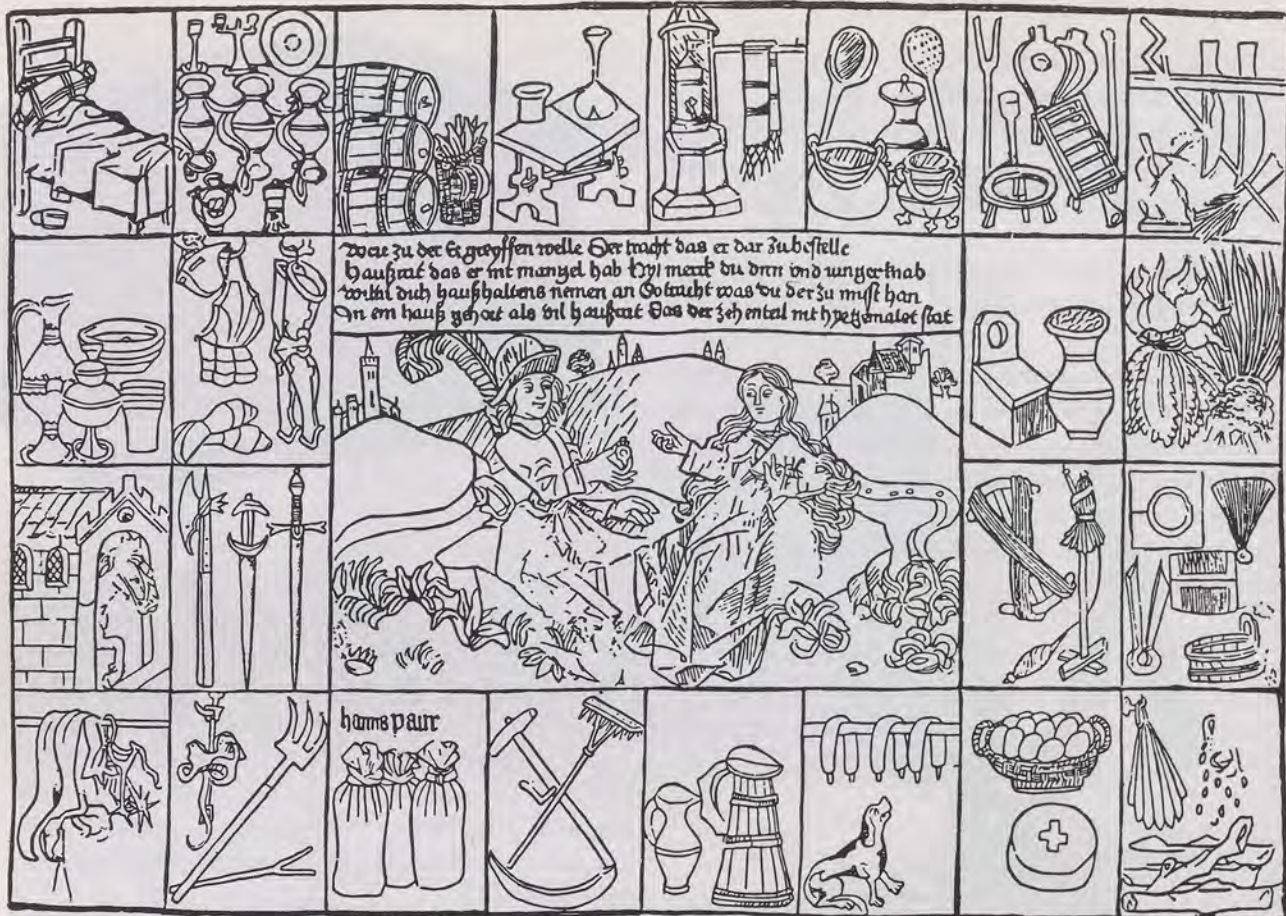 Wer zu der Ee greyffen welle Der tracht das er dar zu bestelle
haußrat das er nit mangel hab hyl merck du dirn vnd iunger knab
wiltu dich haußhaltens nemen an So tracht was du der zu must han
In ein hauß gehort als vil haußrat Das der zehenteil nit hye gemalet stat
hanns paur